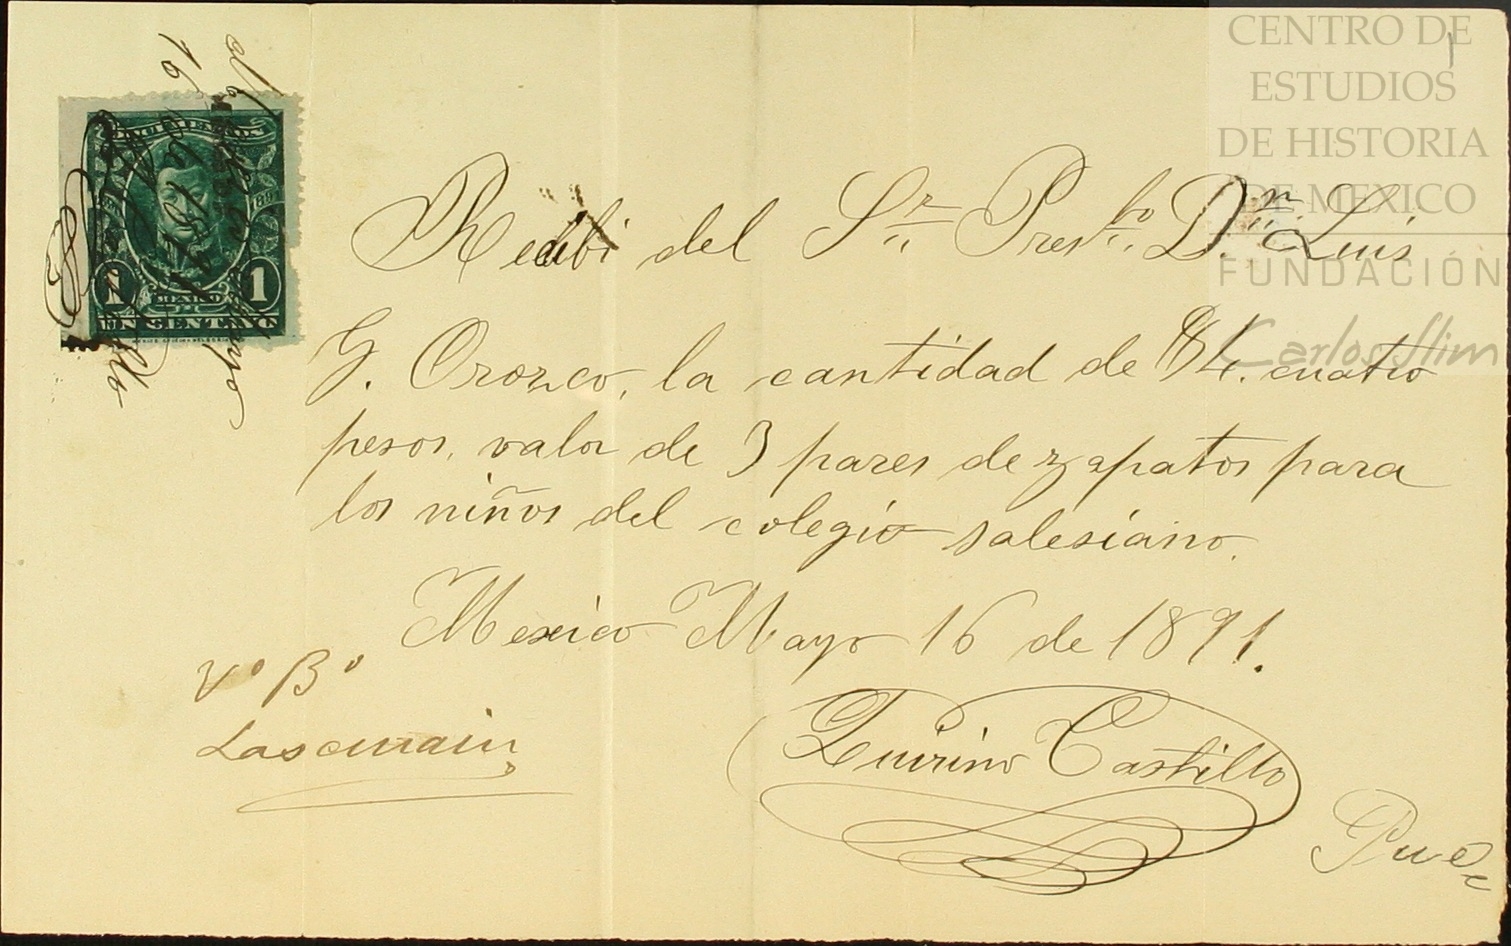 CENTRO DE
ESTUDIOS
DE HISTORIA
DE MEXICO
FUNDACIÓN
Carlos Slim
Mexico Mayo
16 de 1891
DOCUMENTOS
1 MEXICO 1
UN CENTAVO
Recibi del Sr. Presbto. Dn. Luis
G. Orozco, la cantidad de $4. cuatro
pesos, valor de 3 pares de zapatos para
los niños del colegio salesiano.
Mexico Mayo 16 de 1891.
Vo Bo
Lascurain
Quirino Castillo